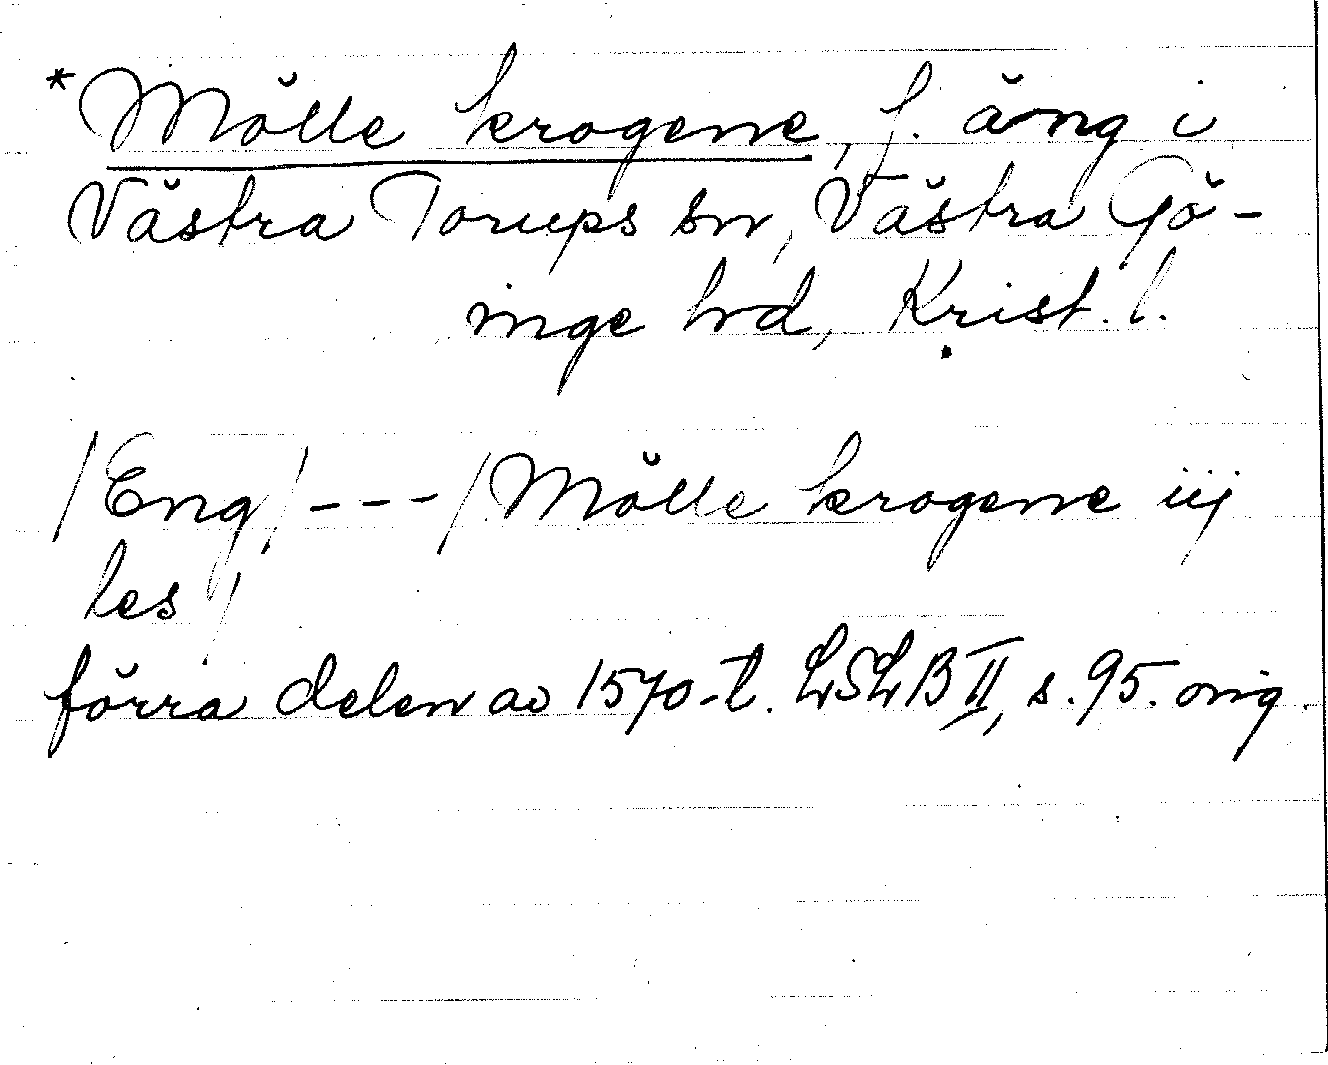 *Mölle krogene, f. äng i
Västra Torups sn, Västra Gö-
inge hd, Krist. l.
/Eng/---/Mölle krogene iij
les/
förra delen av 1570-t. LSLB II, s. 95. orig.